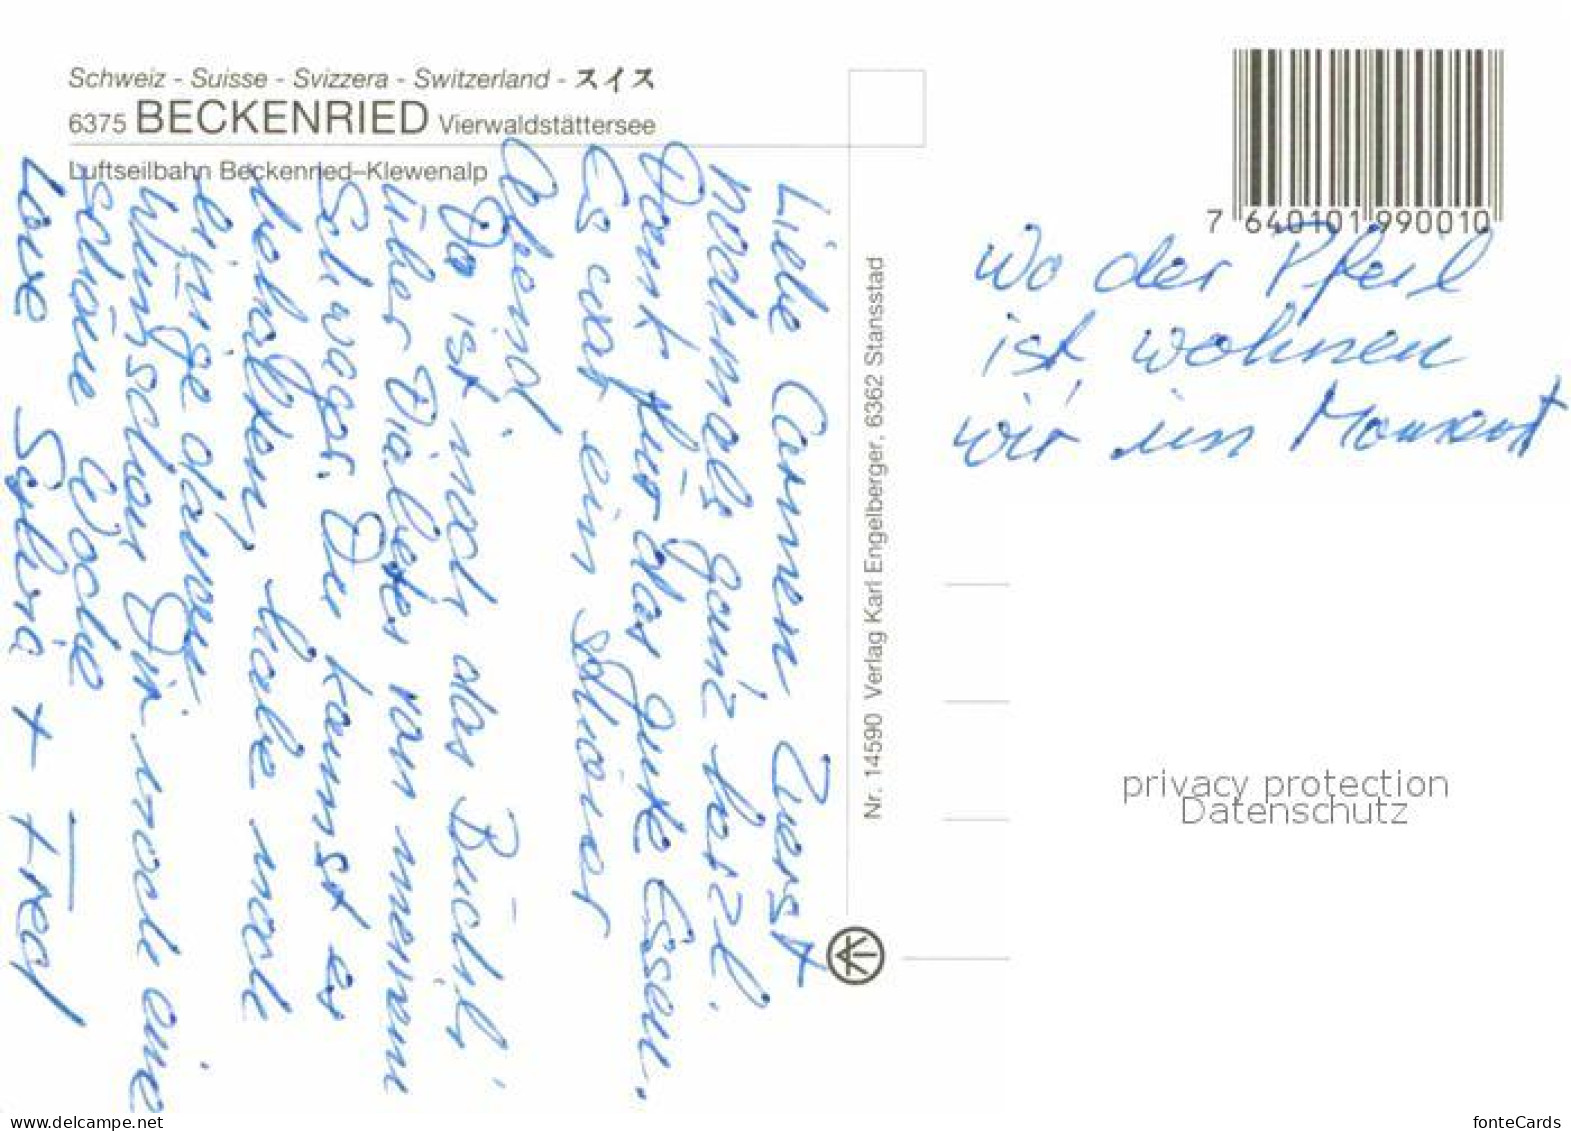 Schweiz - Suisse - Svizzera - Switzerland - スイス
6375 BECKENRIED Vierwaldstättersee
Luftseilbahn Beckenried–Klewenalp
Liebe Carmen Zuerst
nochmals ganz herzl.
Dank für das gute Essen.
Es war ein schöner
Abend.
Da ist noch das Büchli
über Diabetes von meinem
Schwager. Du kannst es
behalten, habe noch
einige davon
Wünschen Dir noch eine
schöne Woche
Love Sylvia + Fred
Nr. 14590 Verlag Karl Engelberger, 6362 Stansstad
7 640101 990010
Wo der Pfeil
ist wohnen
wir im Moment
privacy protection
Datenschutz
www.delcampe.net
fonteCards